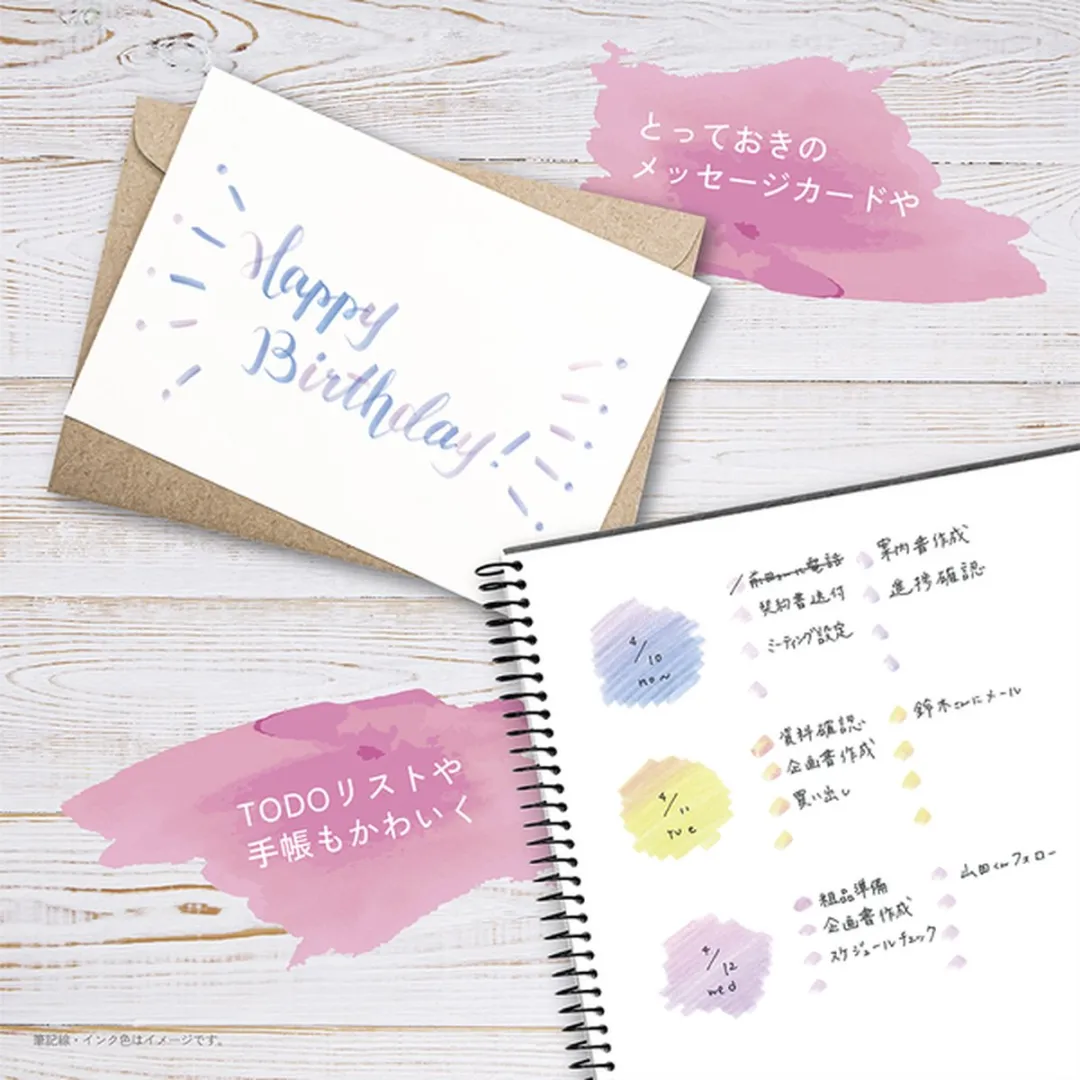 とっておきの
メッセージカードや
Happy
Birthday!
案内書作成
電話
契約書送付
進捗確認
ミーティング設定
4/10
mon
鈴木さんにメール
資料確認
企画書作成
買い出し
4/11
tue
TODOリストや
手帳もかわいく
山田くんフォロー
粗品準備
企画書作成
スケジュールチェック
4/12
wed
筆記線・インク色はイメージです。